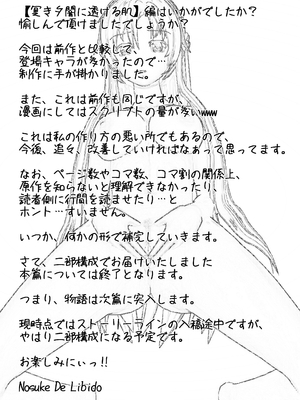 【冥き夕闇に透ける肌】編はいかがでしたか?
愉しんで頂けましたでしょうか?
今回は前作と比較して、
登場キャラが多かったので…
制作に手が掛かりました。
また、これは前作も同じですが、
漫画にしてはスクリプトの量が多いwww
これは私の作り方の悪い所でもあるので、
今後、追々、改善していければなぁって思ってます。
なお、ページ数やコマ数、コマ割の関係上、
原作を知らないと理解できなかったり、
読者側に行間を読ませたり…と
ホント…すいません。
いつか、何かの形で補完していきます。
さて、二部構成でお届けいたしました
本篇については終了となります。
つまり、物語は次篇に突入します。
現時点ではストーリーラインの入稿途中ですが、
やはり二部構成になる予定です。
お楽しみにぃっ!!
Nosuke De Libido